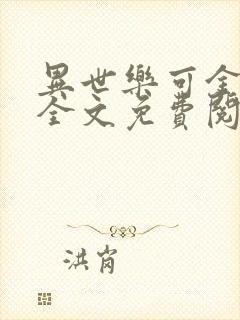 異世樂可全
全文免費閱
洪肖